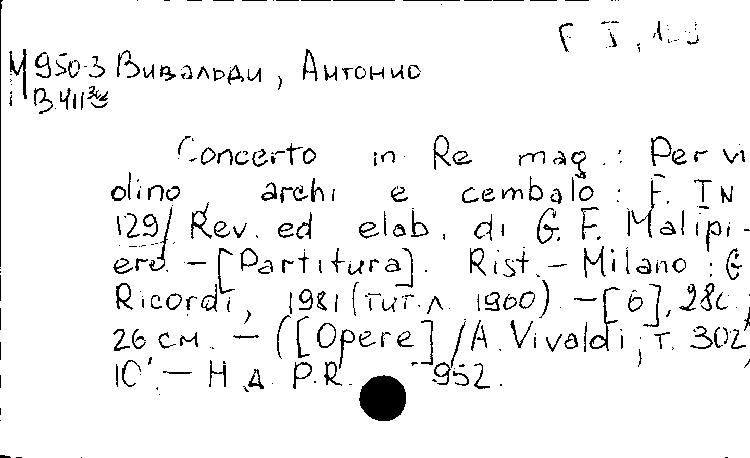 F I, 129
М 950-3 Вивальди, Антонио
В.411
Concerto in Re mag.: Per vi
olino, archi e cembalo: F. I N
129/ Rev. ed elab. di G. F. Malipi-
ero. – [Partitura]. Rist. – Milano: G
Ricordi, 1981 (тит.л. 1960). – [6], 28 с.;
26 см. – ([Opere] / A. Vivaldi; т. 302)
10'. – Н.д. P.R. 952.